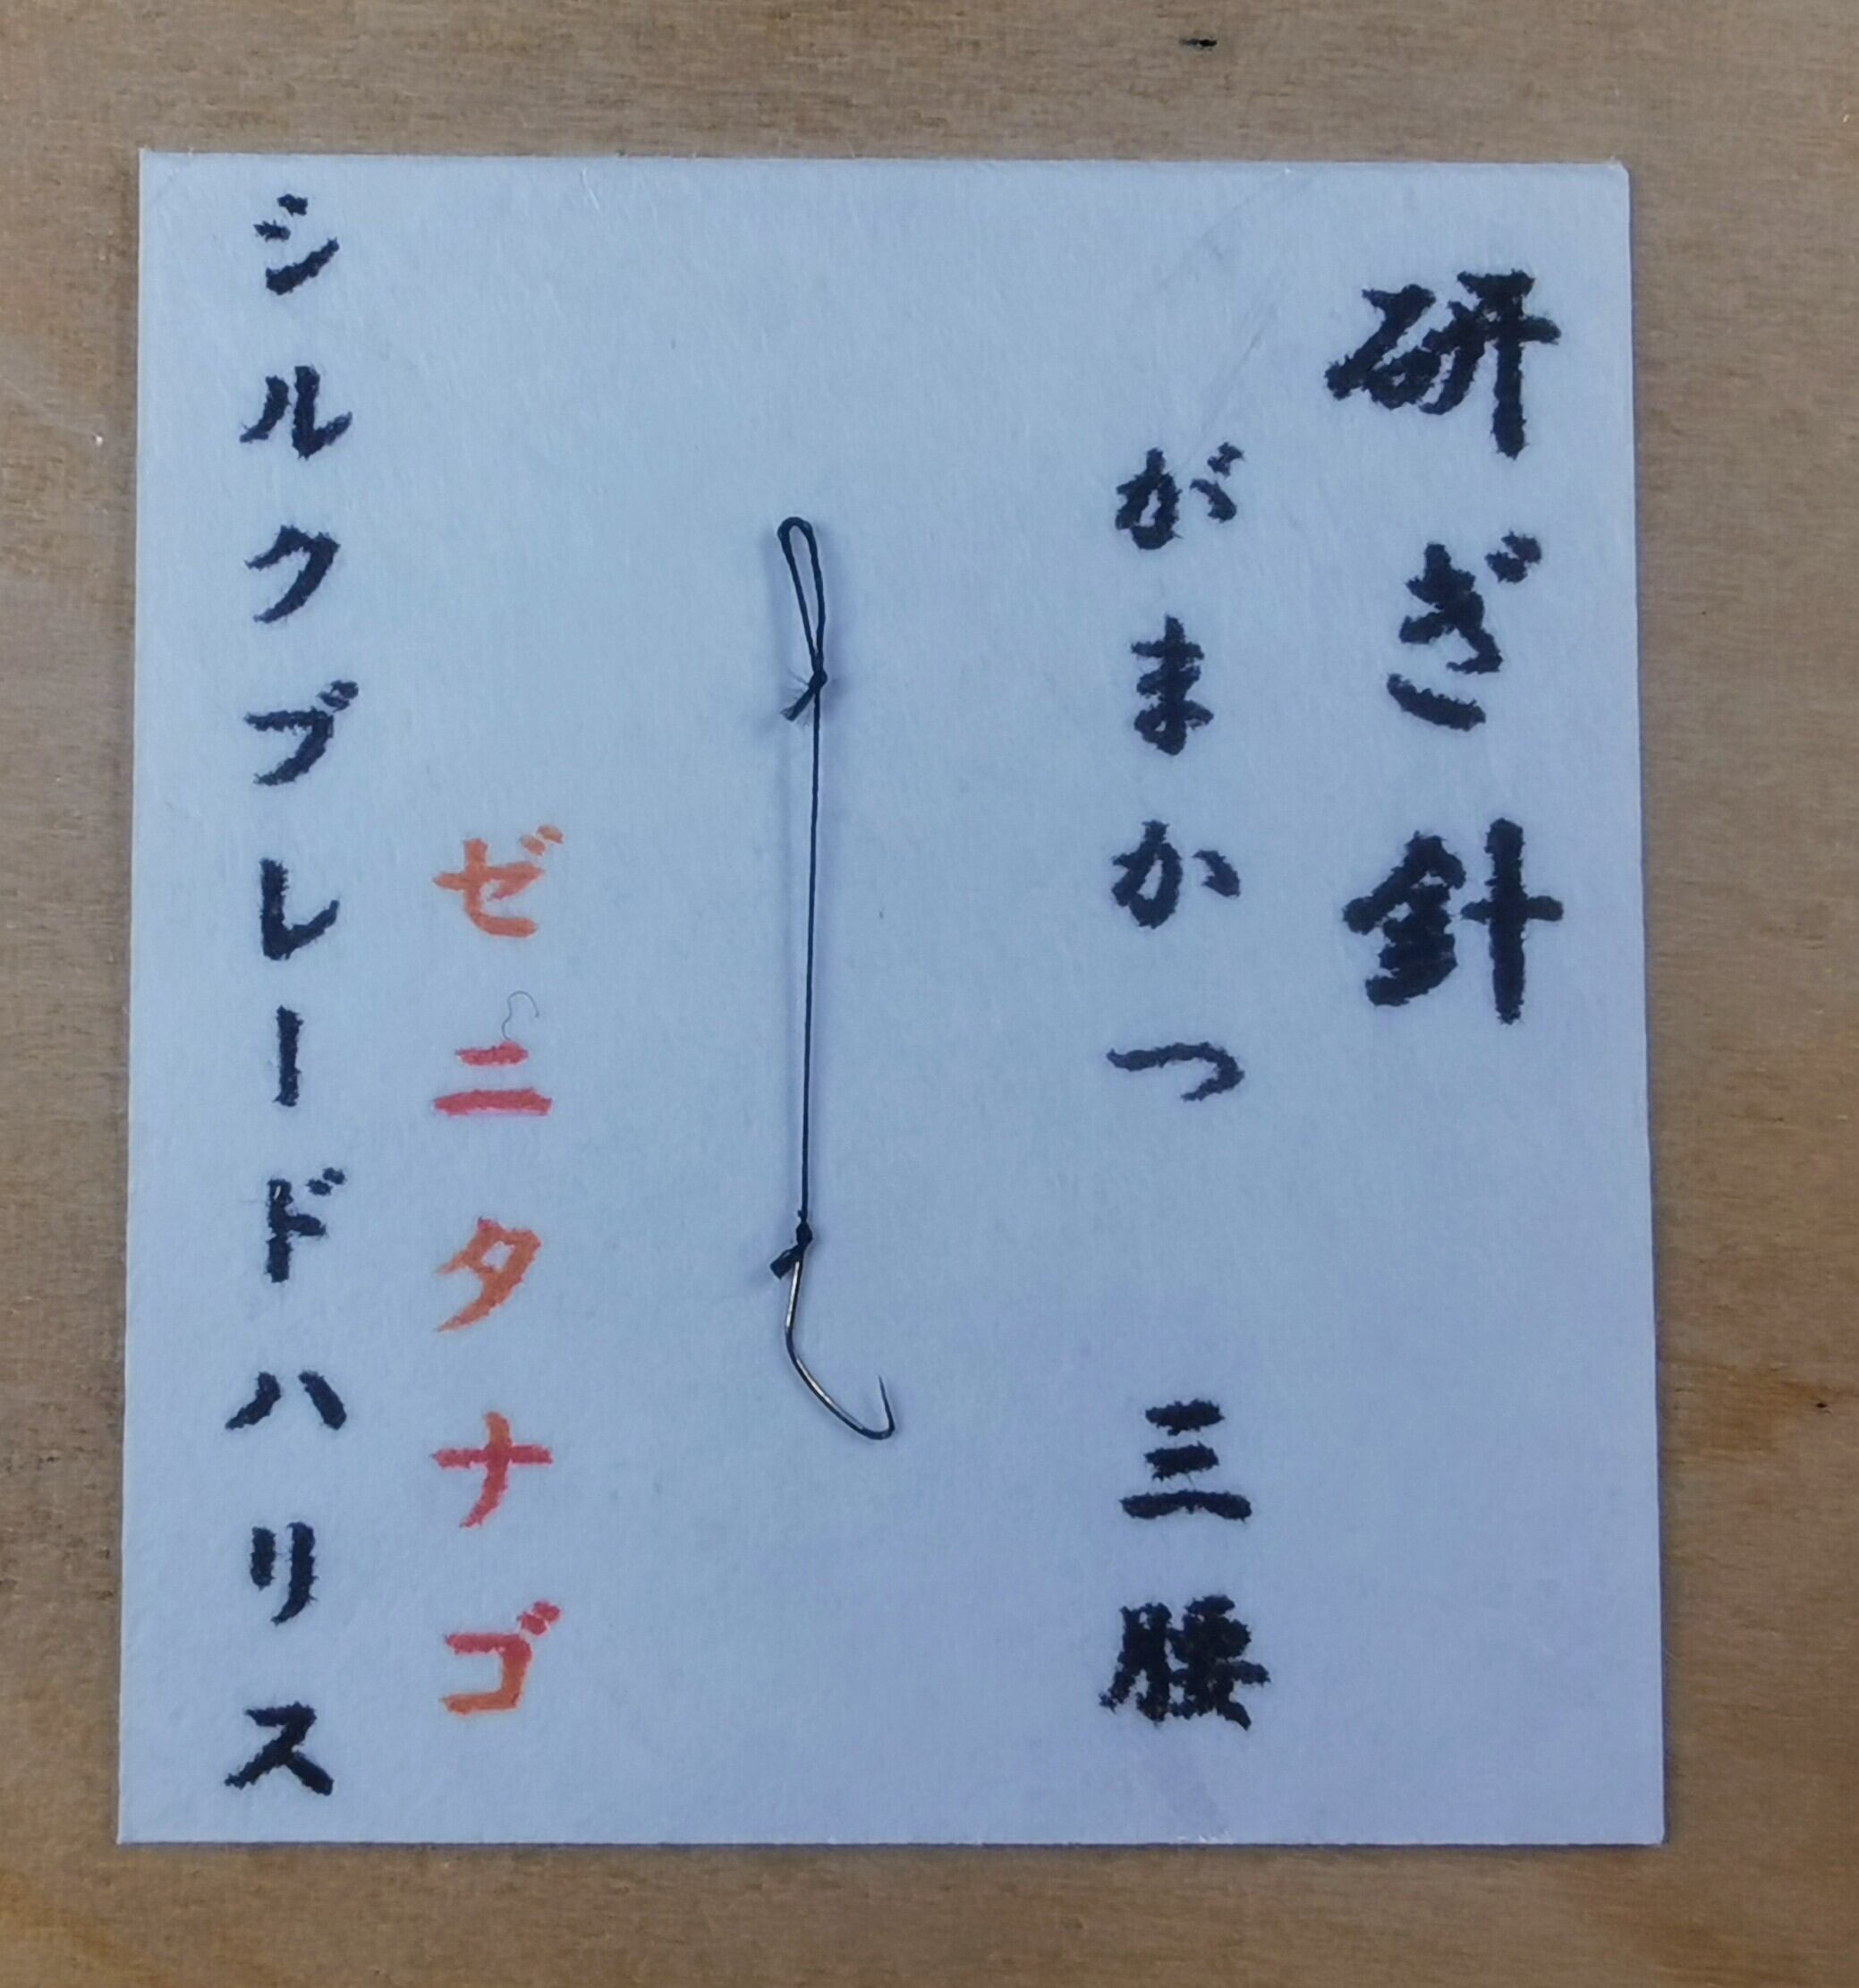 研ぎ針
がまかつ 三腰
ゼニタナゴ
シルクブレードハリス